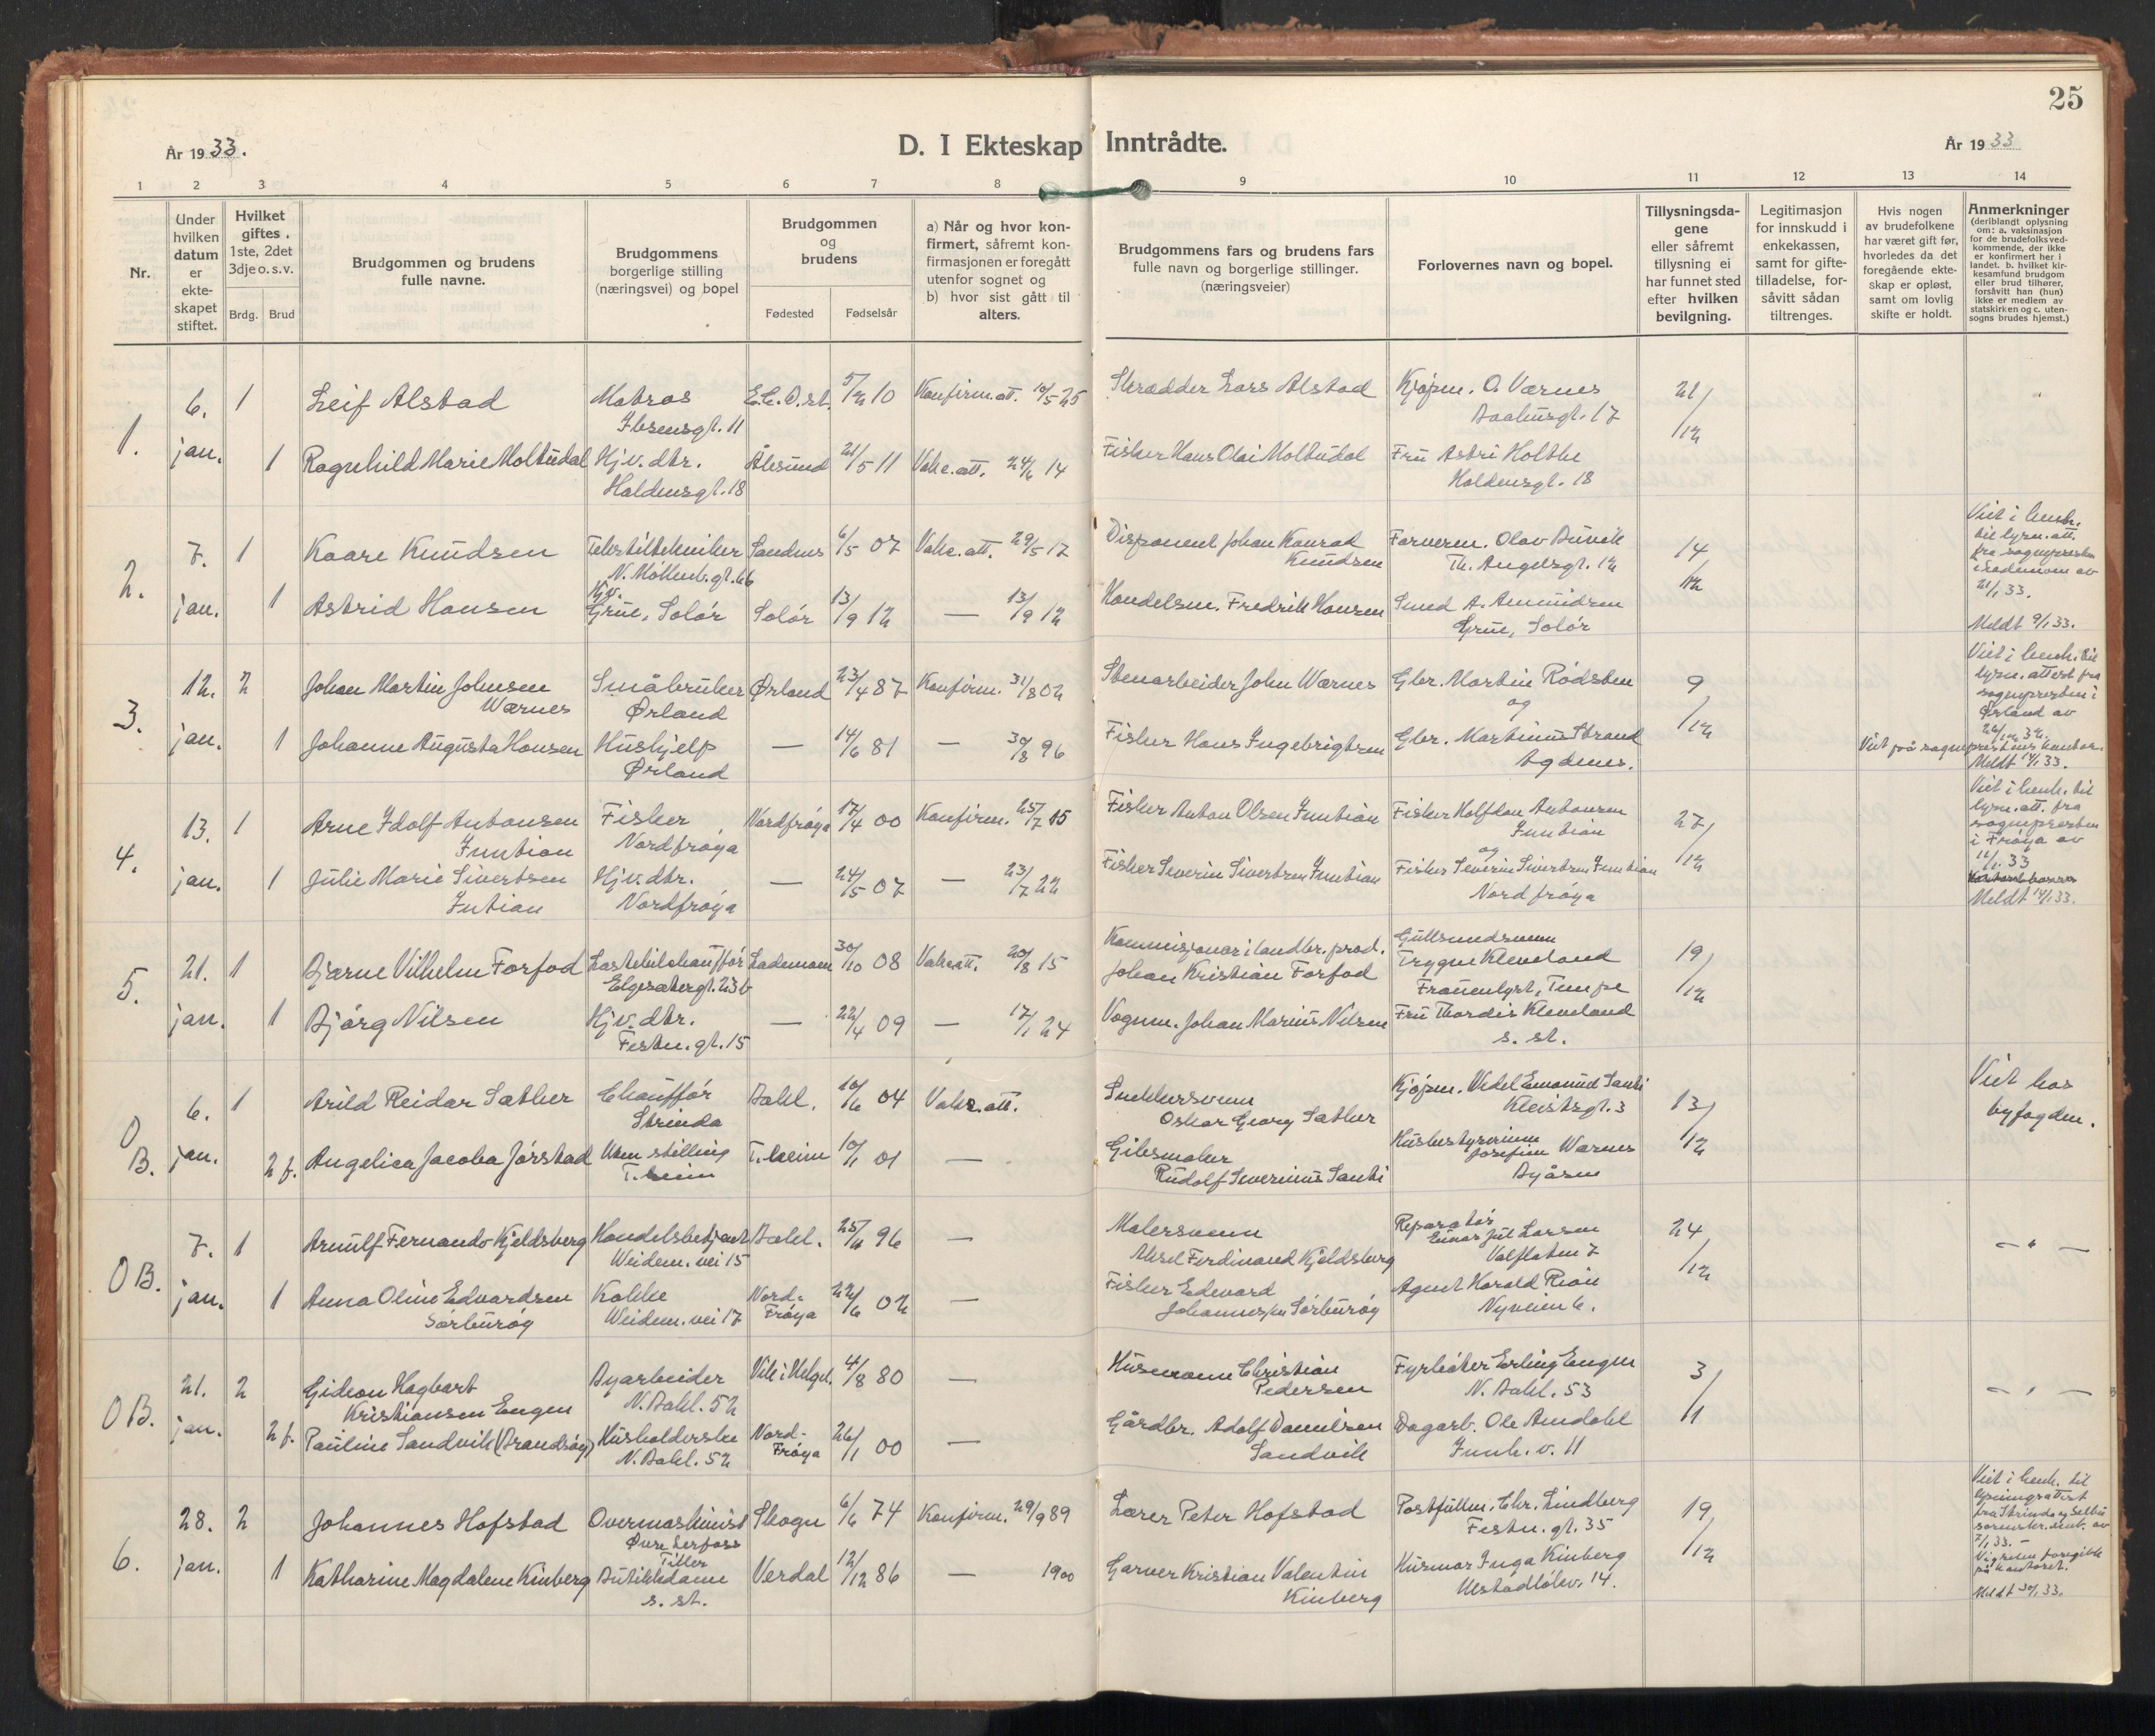 25
År 1933.
D. I Ekteskap Inntrådte.
År 1933
1 2 3 4 5 6 7 8 9 10 11 12 13 14
Nr.
Under hvilken datum er ekte-skapet stiftet.
Hvilket giftes. 1ste, 2det 3dje o.s.v.
Brdg. Brud
Brudgommen og brudens fulle navne.
Brudgommens borgerlige stilling (næringsvei) og bopel
Brudgommen og brudens
Fødested Fødselsår
a) Når og hvor kon-firmert, såfremt kon-firmasjonen er foregått utenfor sognet og b) hvor sist gått til alters.
Brudgommens fars og brudens fars fulle navn og borgerlige stillinger. (næringsveier)
Forlovernes navn og bopel.
Tillysningsda-gene eller såfremt tillysning ei har funnet sted efter hvilken bevilgning.
Legitimasjon for innskudd i enkekassen, samt for gifte-tilladelse, for-såvitt sådan tiltrenges.
Hvis nogen av brudefolkene har været gift før, hvorledes da det foregående ekte-skap er opløst, samt om lovlig skifte er holdt.
Anmerkninger (deriblandt oplysning om: a. vaksinasjon for de brudefolks ved-kommende, der ikke er konfirmert her i landet. b. hvilket kir-kesamfund brudgom eller brud tilhører, forsåvitt han (hun) ikke er medlem av statskirken og c. uten-sogns brudes hjemst.)
1. 6. jan. 1 Leif Alstad Matros Ibsensgt. 11 5/12 10 Konfirm.att. 10/5 25 Skrædder Lars Alstad Kjøpm. O. Værnes 21/12
1 Ragnhild Marie Moltudal Hjv. dtr. Haldensgt. 18 Ålesund 21/5 11 Vakc.att. 24/6 14 Fisker Hans Olai Moltudal Fru Astri Holthe Haldensgt. 18
2. 7. jan. 1 Kaare Knudsen N. Møllenb.gt. 66 6/5 07 Vakc.att. 29/5 17 Disponent Johan Konrad Knudsen Forverm. Olav Duvik Th. Angelsgt. 12 14/12
Viet i henh. til lysn.att. fra sognepresten i Lademoen av 21/1 33.
Meldt 9/1 33.
1 Astrid Hansen Hjv. Grue, Solør Solør 13/9 12 — 13/9 12 Handelsm. Fredrik Hansen Smed A. Amundsen Grue, Solør
3. 12. jan. 2 Johan Martin Johnsen Wærnes Småbruker Ørland Ørland 23/4 87 Konfirm. 31/8 02 Stenarbeider John Wærnes Gbr. Martin Rødsten og 9/12
Viet i henh. til lysn.attest fra sognepresten i Ørland av
1 Johanne Augusta Hansen Hushjelp Ørland — 14/6 81 — 30/8 96 Fisker Hans Ingebrigtsen Gbr. Martinus Strand Agdenes.
Viet på sogneprestens kontor. Meldt 14/1 33.
4. 13. jan. 1 Arne Idolf Antonsen Inntian Fisker Nordfrøya Nordfrøya 17/4 00 Konfirm. 25/7 15 Fisker Anton Olsen Inntian Fisker Halfdan Antonsen Inntian og 27/12
Viet i henh. til lysn.att. fra sognepresten i Frøya av 11/1 33
Meldt 14/1 33.
1 Julie Marie Sivertsen Intian Hjv. dtr. Nordfrøya — 24/5 07 — 23/7 22 Fisker Severin Sivertsen Inntian Fisker Severin Sivertsen Inntian Nordfrøya
5. 21. jan. 1 Bjarne Vilhelm Forfod Lastebilchauffør Elgesætergt. 23 b Lademoen 30/10 08 Vakc.att. 20/8 15 Kommisjonær i landbr. prod. Johan Kristian Forfod Gullsmedsvenn Trygve Kleveland Frauenlyst, Tempe 19/12
1 Bjørg Nilsen Hjv. dtr. Festn.gt. 15 — 22/4 09 — 17/1 24 Vognm. Johan Marius Nilsen Fru Thordis Kleveland s. st.
O B. 6. jan. 1 Arild Reidar Sæther Chauffør Strinda Bakl. 10/6 04 Vakc.att. Snekkersvenn Oskar Georg Sæther Kjøpm. Vedel Emanuel Santi Kleistsgt. 3 13/12 Viet hos byfogden.
2 f. Angelica Jacoba Jørstad Uten stilling T.heim T.heim 10/1 01 — Gibsmaker Rudolf Severinus Santi Husbestyrerinne Josefine Wærnes Byåsen
O B. 7. jan. 1 Arnulf Fernando Kjeldsberg Handelsbetjent Weidem. vei 15 Bakl. 25/11 96 — Malersvenn Aksel Ferdinand Kjeldsberg Reparatør Einar Jul Larsen Valsflaten 7 24/12 — " —
1 Anna Oline Edvardsen Sørburøy Kokke Weidem. vei 17 Nord-Frøya 22/6 02 — Fisker Edevard Johannessen Sørburøy Agent Harald Rian Nyveien 6.
O B. 21. jan. 2 Gideon Hagbart Kristiansen Engen Byarbeider N. Bakl. 52 Vik i Helgel. 4/8 80 — Husmann Christian Pedersen Fyrbøter Erling Engen N. Bakl. 53 3/1 — " —
2 f. Pauline Sandvik (Brandsøy) Husholderske N. Bakl. 52 Nord-Frøya 26/1 00 — Gårdbr. Adolf Danielsen Sandvik Dagarb. Ole Amdahl Innh. v. 11
6. 28. jan. 2 Johannes Hofstad Overmaskinist Øvre Lerfoss Tiller Skogn 6/6 74 Konfirm. 29/9 89 Lærer Peter Hofstad Postfullm. Chr. Lindberg Festn. gt. 35 19/12
Viet i henh. til lysningsattest fra Strinda og Selbu sorenskr. emb. av 7/1 33. — Vigselen foregikk på kontoret. Meldt 30/1 33.
1 Katharine Magdalene Kinberg Butikkdame s. st. Verdal 12/12 86 — 1900 Garver Kristian Valentin Kinberg Husmor Inga Kinberg 14.